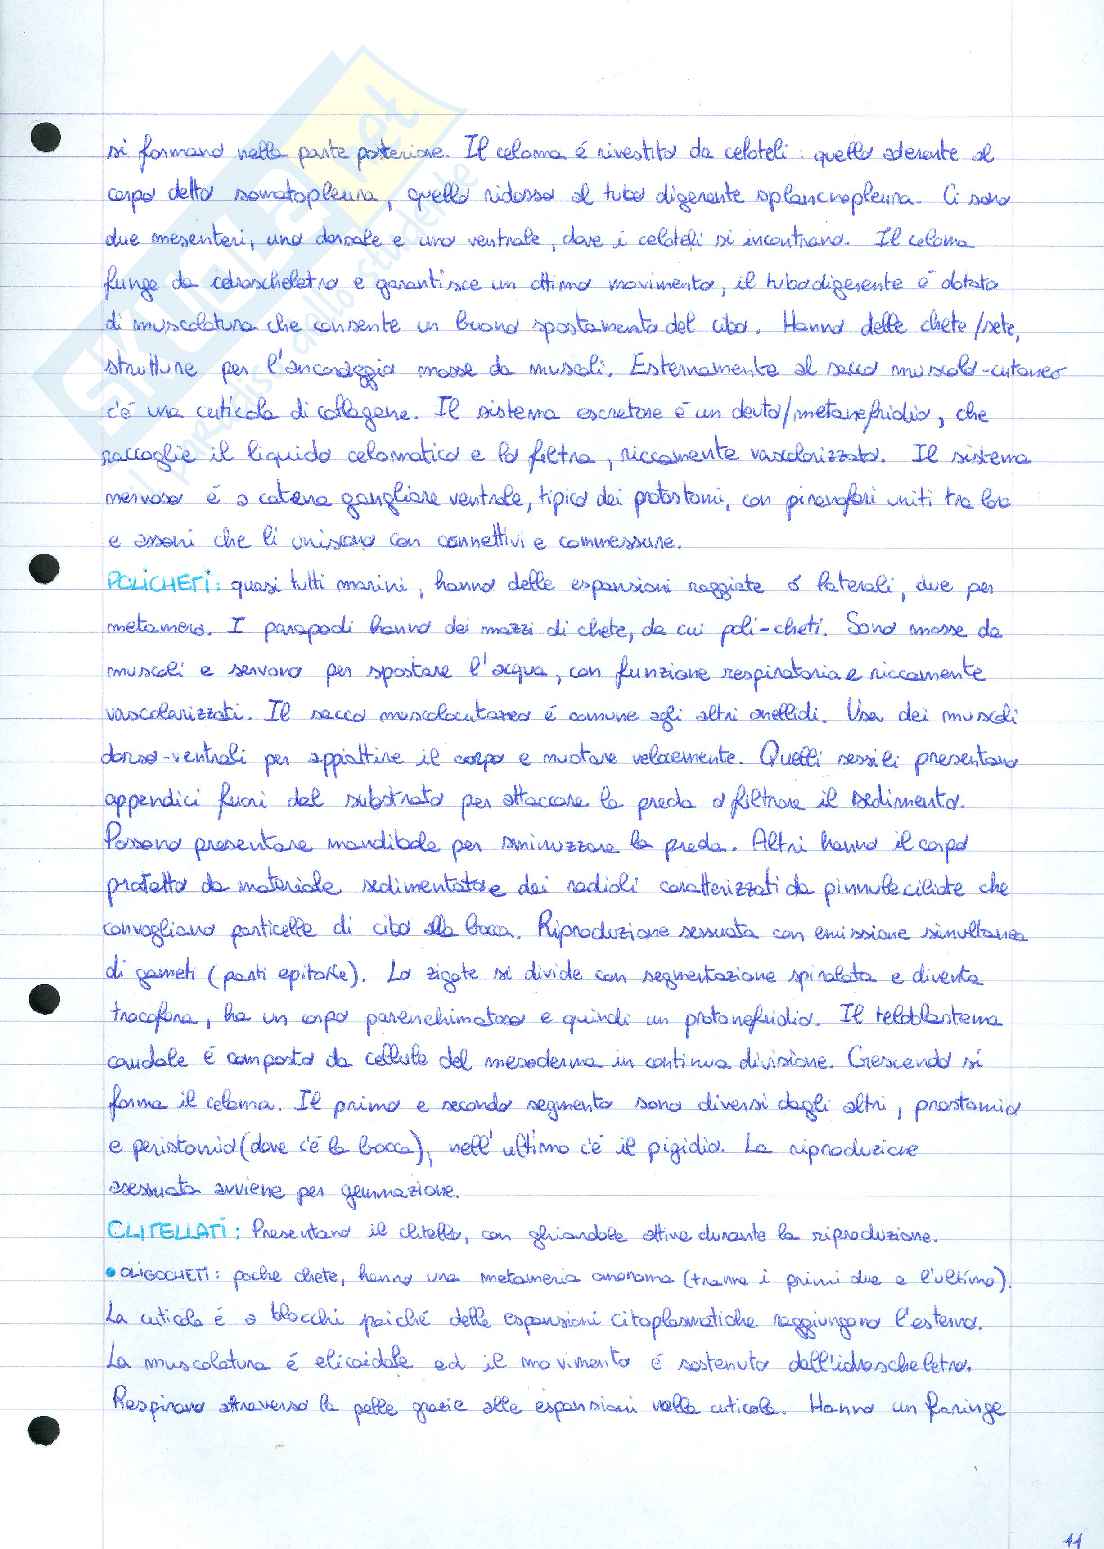 si formano nella parte posteriore. Il celoma é rivestito da celoteli: quello aderente al
corpo detto somatopleura, quello ridosso al tubo digerente splancnopleura. Ci sono
due mesenteri, uno dorsale e uno ventrale, dove i celoteli si incontrano. Il celoma
funge da idroscheletro e garantisce un ottimo movimento, il tubo digerente é dotato
di muscolatura che consente un buono spostamento del cibo. Hanno delle chete/sete,
strutture per l'ancoraggio mosse da muscoli. Esternamente al sacco muscolo-cutaneo
c'é una cuticola di collagene. Il sistema escretore é un deuto/metanefridio, che
raccoglie il liquido celomatico e lo filtra, riccamente vascolarizzato. Il sistema
nervoso é a catena gangliare ventrale, tipico dei protostomi, con pirenofori uniti tra loro
e assoni che li uniscono con connettivi e commessure.
POLICHETI: quasi tutti marini, hanno delle espansioni raggiate o laterali, due per
metamero. I parapodi hanno dei mazzi di chete, da cui poli-cheti. Sono mosse da
muscoli e servono per spostare l'acqua, con funzione respiratoria e riccamente
vascolarizzati. Il sacco muscolocutaneo é comune agli altri anellidi. Usa dei muscoli
dorso-ventrali per appiattire il corpo e nuotare velocemente. Quelli sessili presentano
appendici fuori dal substrato per attaccare la preda o filtrare il sedimento.
Possono presentare mandibole per sminuzzare la preda. Altri hanno il corpo
protetto da materiale sedimentato e dei radioli caratterizzati da pinnule ciliate che
convogliano particelle di cibo alla bocca. Riproduzione sessuata con emissione simultanea
di gameti (parti epitoke). Lo zigote si divide con segmentazione spiralata e diventa
trocofora, ha un corpo parenchimatoso e quindi un protonefridio. Il teloblastema
caudale é composto da cellule del mesoderma in continua divisione. Crescendo si
forma il celoma. Il primo e secondo segmento sono diversi dagli altri, prostomio
e peristomio (dove c'é la bocca), nell'ultimo c'é il pigidio. La riproduzione
asessuata avviene per gemmazione.
CLITELLATI: Presentano il clitello, con ghiandole attive durante la riproduzione.
• OLIGOCHETI: poche chete, hanno una metameria omonoma (tranne i primi due e l'ultimo).
La cuticola é a blocchi poiché delle espansioni citoplasmatiche raggiungono l'esterno.
La muscolatura é elicoidale ed il movimento é sostenuto dall'idroscheletro.
Respirano attraverso la pelle grazie alle espansioni nella cuticola. Hanno un faringe
11
SKUOLA.net
il paradiso dello studente